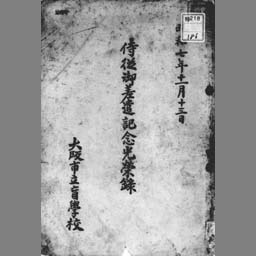 昭和七年十一月十三日
侍從御差遣記念光榮錄
大阪市立盲學校
特218
186